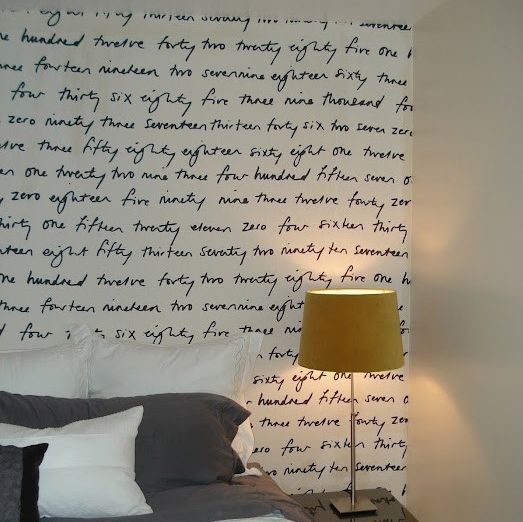 eighty fifty thirteen seventy two ninety ten seventeen
one hundred twelve forty two twenty eighty five one h
three fourteen nineteen two sevennine eighteen sixty three
four thirty six eighty five three nine thousand fo
zero ninety three seventeen thirteen forty six two seven zero
twelve three fifty eighty eighteen sixty eight one twelve
one twenty two nine three four hundred fifteen seven o
zero eighteen five ninety nine three twelve forty zero
thirty one fifteen twenty eleven zero four sixteen thirty
eighteen eight fifty thirteen seventy two ninety ten seventeen
one hundred twelve forty two twenty eighty five one h
three fourteen nineteen two sevennine eighteen six
four six eighty five three nine
forty
sixty eight one twelve
hundred fifteen seven o
three twelve forty zero
zero four sixteen thirty
two ninety ten seventeen